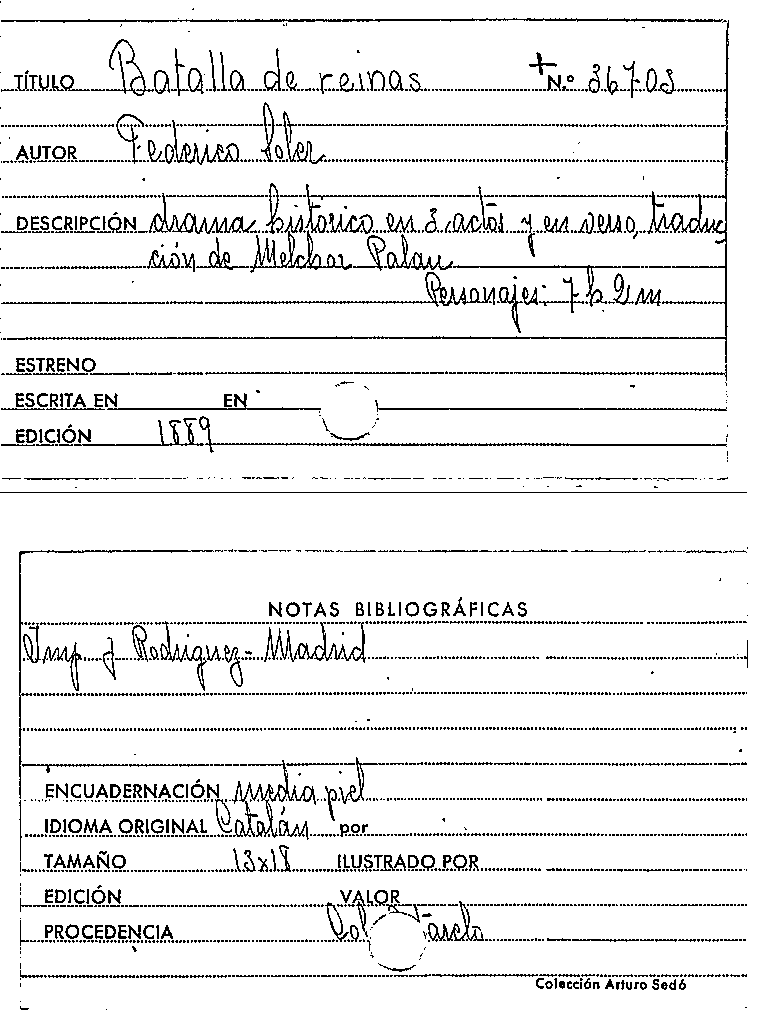 TÍTULO Batalla de reinas + N.º 36703
AUTOR Federico Soler
DESCRIPCIÓN drama histórico en 3 actos y en verso, traduc
ción de Melchor Palau
Personajes: 7 h 2 m
ESTRENO
ESCRITA EN EN
EDICIÓN 1889
NOTAS BIBLIOGRÁFICAS
Imp J Rodriguez - Madrid
ENCUADERNACIÓN media piel
IDIOMA ORIGINAL Catalán por
TAMAÑO 13x18 ILUSTRADO POR
EDICIÓN VALOR
PROCEDENCIA Col
Colección Arturo Sedó